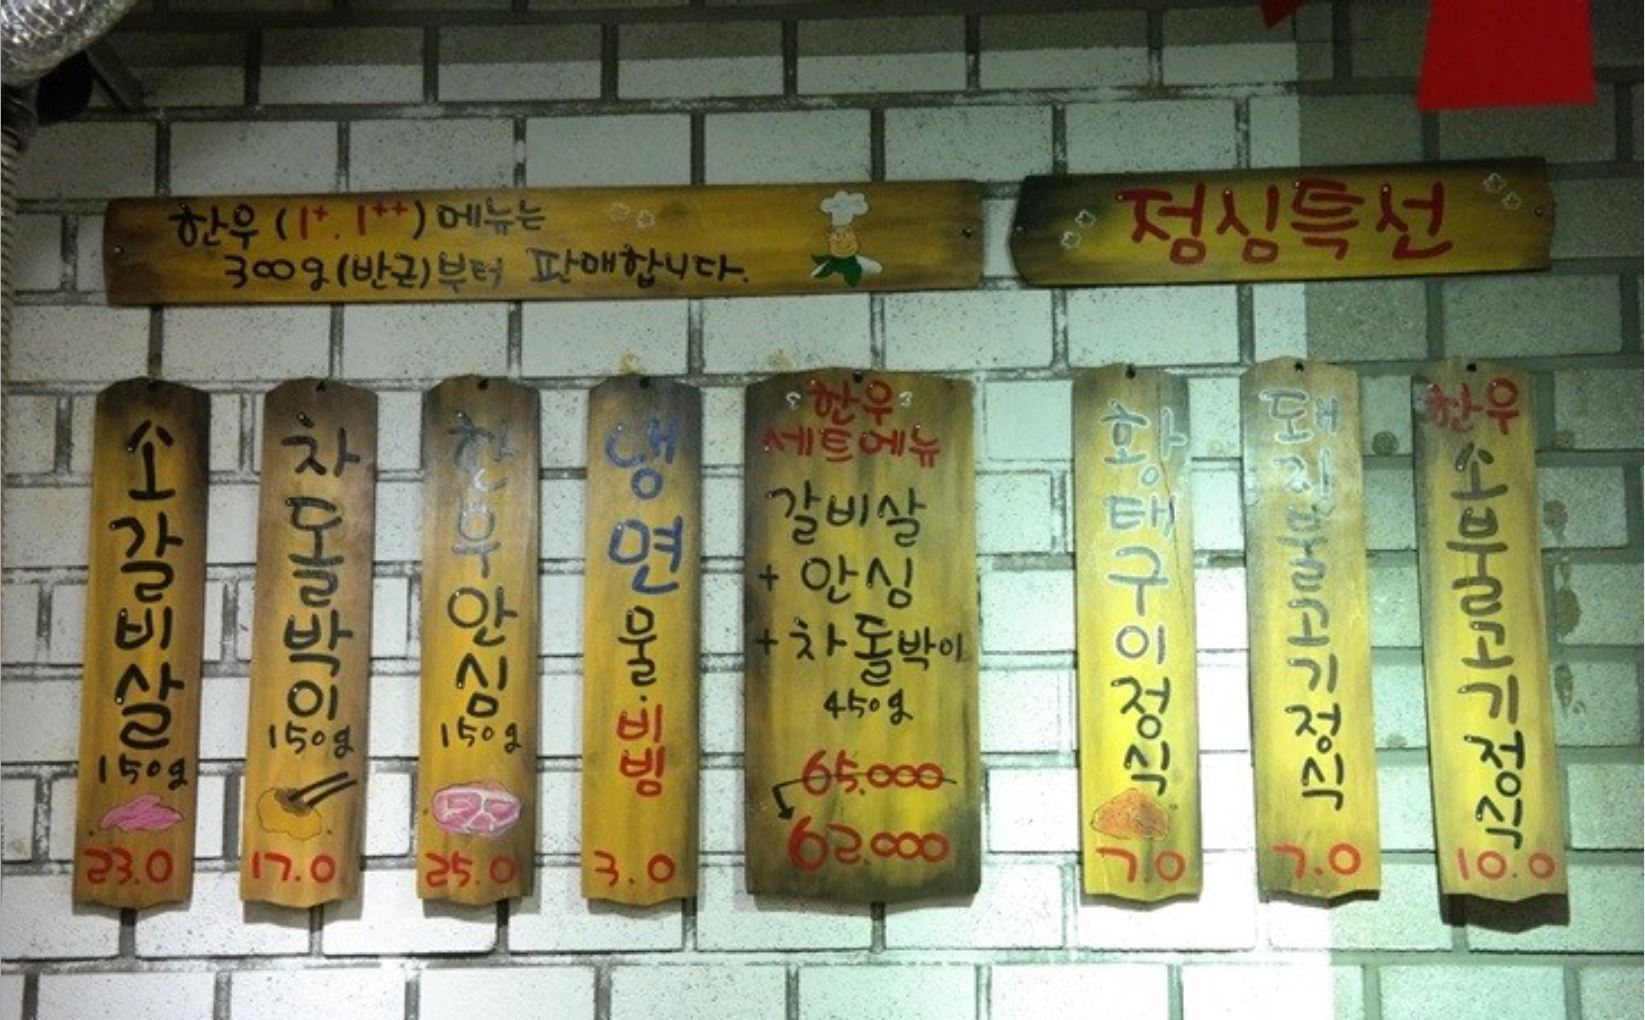 한우 (1+. 1++) 메뉴는
300g(반근)부터 판매합니다.
점심특선
소갈비살
150g
23.0
차돌박이
150g
17.0
한우안심
150g
25.0
냉면
물·비빔
3.0
한우
세트메뉴
갈비살
+ 안심
+ 차돌박이
450g
65.000
62.000
황태구이정식
7.0
돼지불고기정식
7.0
한우
소불고기정식
10.0